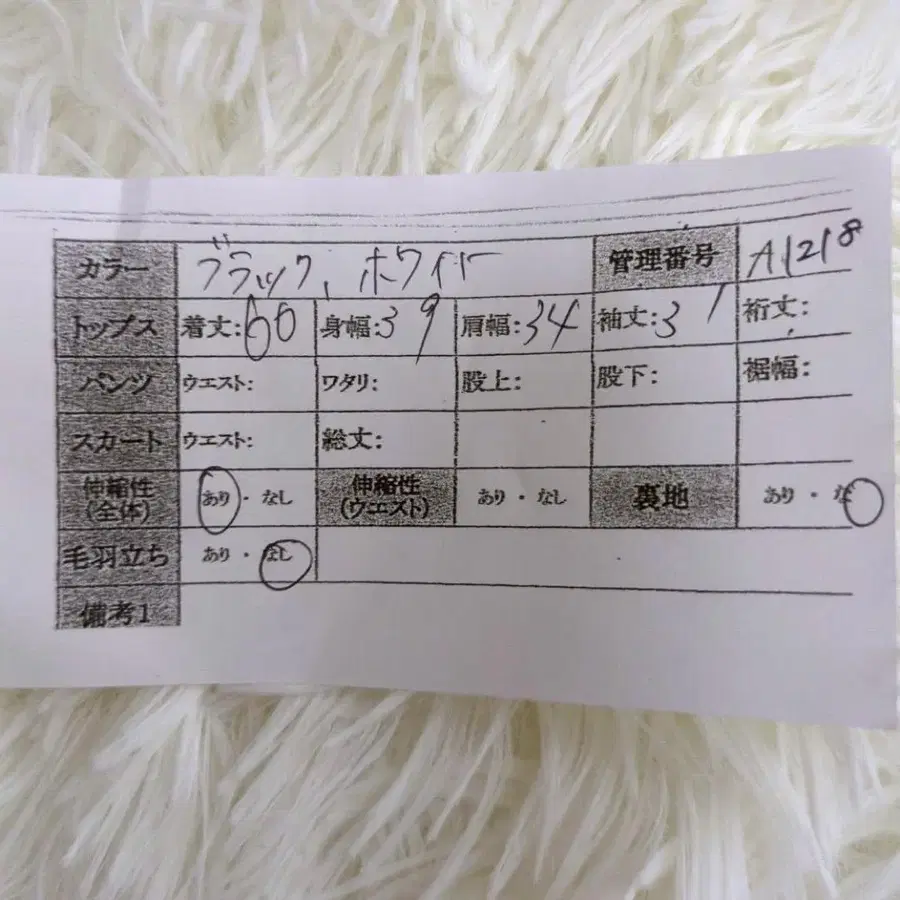 カラー ブラック、ホワイト 管理番号 A1218
トップス 着丈:60 身幅:39 肩幅:34 袖丈:31 裄丈:
パンツ ウエスト: ワタリ: 股上: 股下: 裾幅:
スカート ウエスト: 総丈:
伸縮性 あり・なし 伸縮性 あり・なし 裏地 あり・な
(全体) (ウエスト)
毛羽立ち あり・なし
備考1